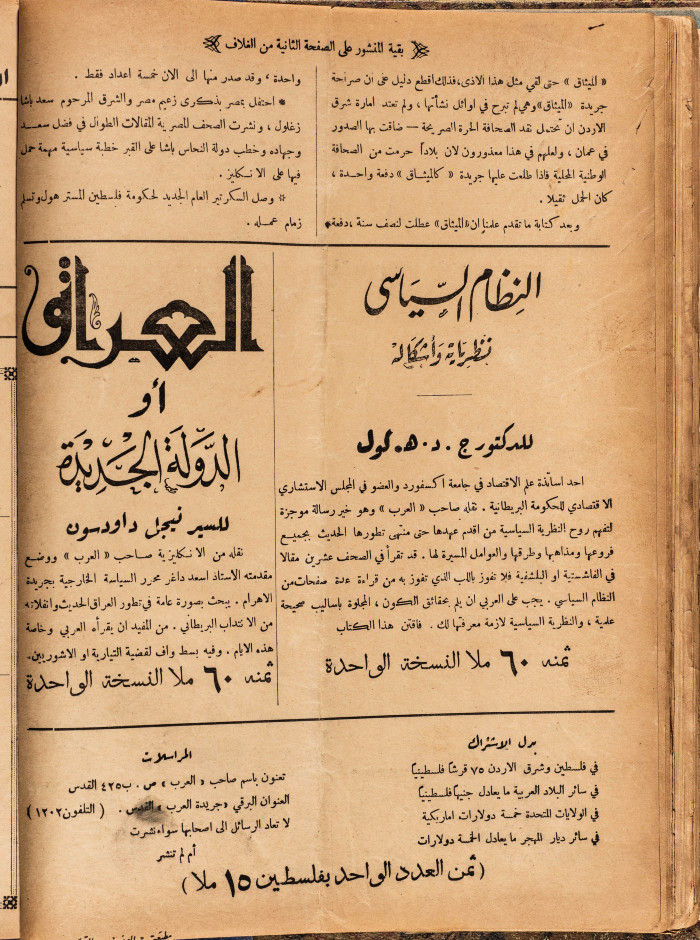 بقية المنشور على الصفحة الثانية من الغلاف
« الميثاق » حتى لقي مثل هذا الاذى، فذلك اقطع دليل على ان صراحة
جريدة «الميثاق» وهي لم تبرح في اوائل نشأتها ، ولم تعتد امارة شرق
الاردن ان تحتمل نقد الصحافة الحرة الصريحة — ضاقت بها الصدور
في عمان ، ولعلهم في هذا معذورون لان بلاداً حرمت من الصحافة
الوطنية المحلية فاذا طلعت عليها جريدة « كالميثاق » دفعة واحدة ،
كان الحمل ثقيلا .
وبعد كتابة ما تقدم علمنا ان «الميثاق» عطلت لنصف سنة ، دفعة
واحدة ، وقد صدر منها الى الان خمسة اعداد فقط .
* احتفل بمصر بذكرى زعيم مصر والشرق المرحوم سعد باشا
زغلول ، ونشرت الصحف المصرية المقالات الطوال في فضل سعد
وجهاده وخطب دولة النحاس باشا على القبر خطبة سياسية مهمة حمل
فيها على الانكليز .
* وصل السكرتير العام الجديد لحكومة فلسطين المستر هول وتسلم
زمام عمله .
النظام السياسي
نظرياته وأشكاله
للدكتور ج . د . هـ . كول
احد اساتذة علم الاقتصاد في جامعة اكسفورد والعضو في المجلس الاستشاري
الاقتصادي للحكومة البريطانية . نقله صاحب « العرب » وهو خير رسالة موجزة
لتفهم روح النظرية السياسية من اقدم عهدها حتى منتهى تطورها الحديث بجميع
فروعها ومذاهبها وطرقها والعوامل المسيرة لها . قد تقرأ في الصحف عشرين مقالا
في الفاشستية او البلشفية فلا تفوز باللب الذي تفوز به من قراءة عدة صفحات من
النظام السياسي . يجب على العربي ان يلم بحقائق الكون ، المجلوة باساليب صحيحة
علمية ، والنظرية السياسية لازمة معرفتها لك . فاقتن هذا الكتاب
ثمنه ٦٠ ملا النسخة الواحدة
العراق
أو
الدولة الجديدة
للسير نيجل داودسون
نقله من الانكليزية صاحب « العرب » ووضع
مقدمته الاستاذ اسعد داغر محرر السياسة الخارجية بجريدة
الاهرام . يبحث بصورة عامة في تطور العراق الحديث وانفلاته
من الانتداب البريطاني . من المفيد ان يقرأه العربي وخاصة
هذه الايام . وفيه بسط واف لقضية التيارية او الاشوريين .
ثمنه ٦٠ ملا النسخة الواحدة
بدل الاشتراك
في فلسطين وشرق الاردن ٧٥ قرشاً فلسطينياً
في سائر البلاد العربية ما يعادل جنيهاً فلسطينياً
في الولايات المتحدة خمسة دولارات اماريكية
في سائر ديار المهجر ما يعادل الخمسة دولارات
المراسلات
تعنون باسم صاحب « العرب » ص . ب ٤٢٥ القدس
العنوان البرقي « جريدة العرب » القدس . ( التلفون ١٢٠٢ )
لا تعاد الرسائل الى اصحابها سواء نشرت
أم لم تنشر
( ثمن العدد الواحد بفلسطين ١٥ ملا )